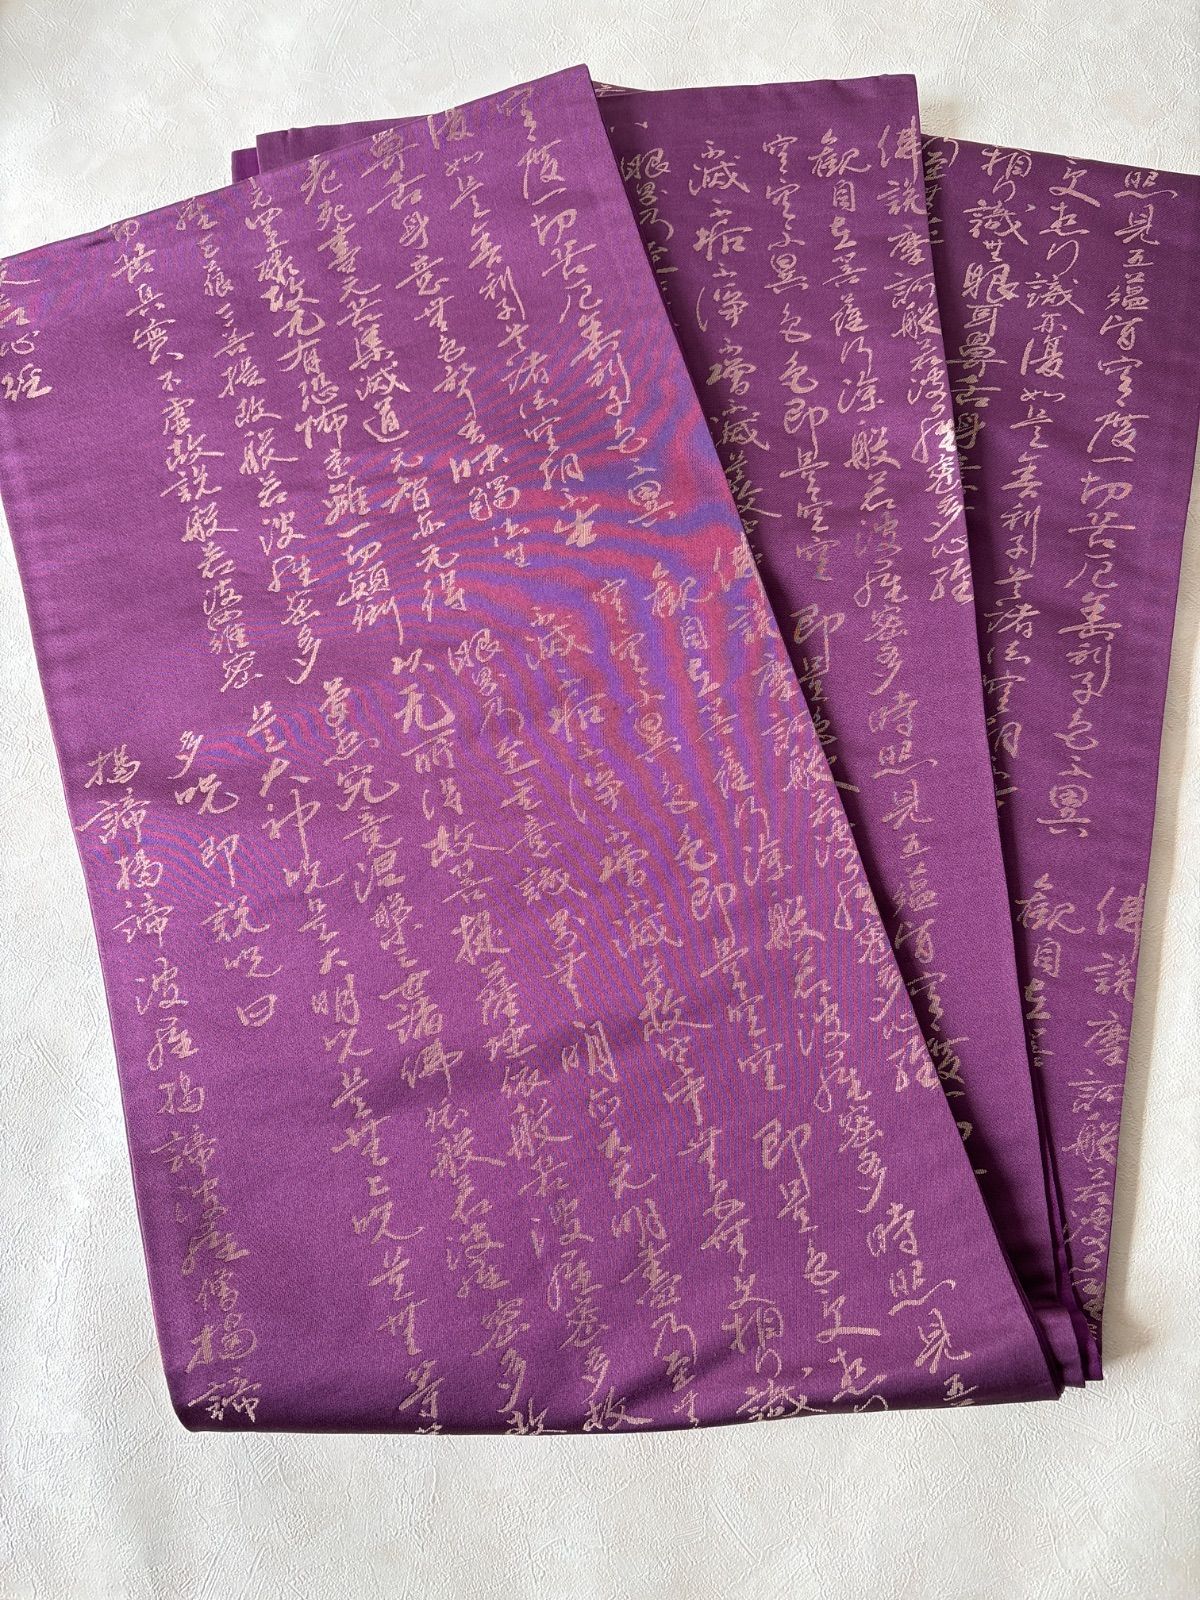 照見五蘊皆空度一切苦厄舍利子色不異
佛說摩訶般若波羅
受想行識亦復如是舍利子是諸法空相
觀自在菩
相行識無眼耳鼻舌身
佛說摩訶般若波羅蜜多心經
觀自在菩薩行深般若波羅蜜多時照見五蘊皆空度一切
空空不異色色即是空空即是色受
不滅不垢不淨不增不減是故空
眼界乃至
佛說摩訶般若波羅蜜多心經
觀自在菩薩行深般若波羅蜜多時照見五
空度一切苦厄舍利子色不異
空空不異色色即是空空即是色受想
復如是舍利子是諸法空相不生
不滅不垢不淨不增不減是故空中無色無受想行識
鼻舌身意無色聲香味觸法無
眼界乃至無意識界無無明亦无無明盡乃至無
老死盡无苦集滅道无智亦无得
以无所得故菩提薩埵依般若波羅蜜多故
无罣礙故无有恐怖遠離一切顛倒
夢想究竟涅槃三世諸佛依般若波羅蜜多故
藐三菩提故般若波羅蜜多
是大神呪是大明呪是無上呪是無等
切苦真實不虛故說般若波羅蜜
多呪即說呪曰
揭諦揭諦波羅揭諦波羅僧揭諦
心經